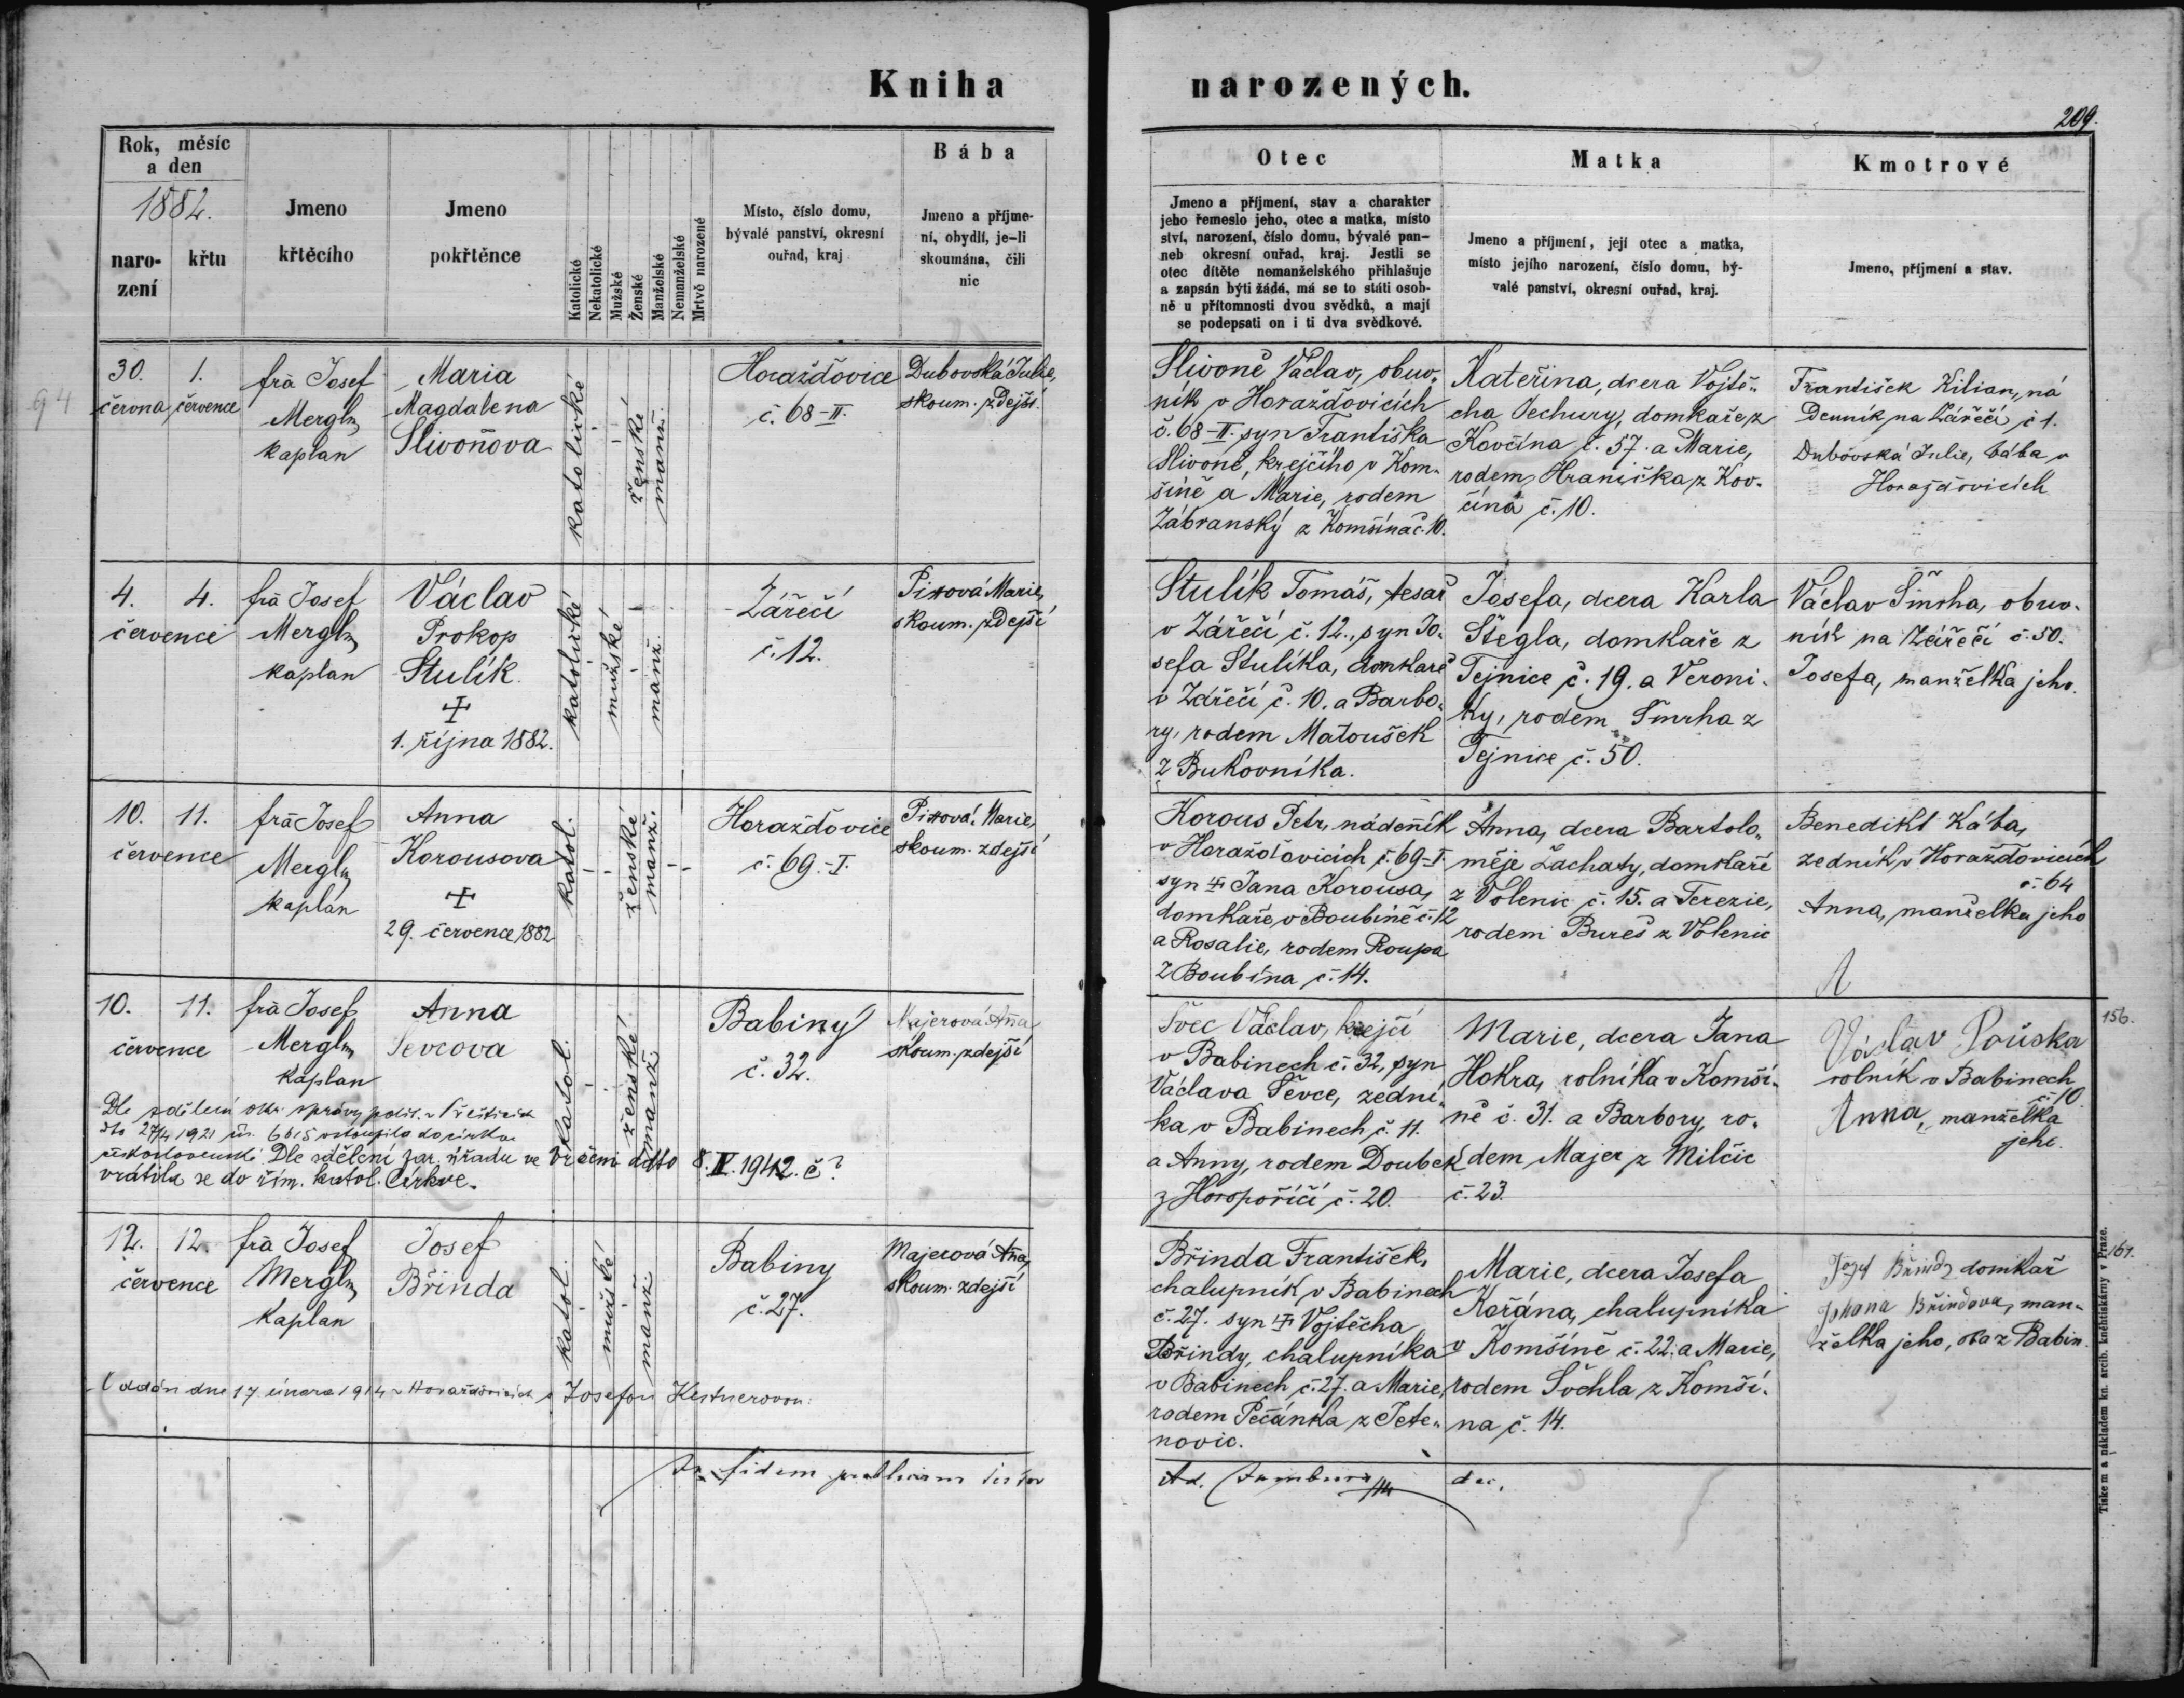 Kniha narozených.
209.
Rok, měsíc
a den
1882.
naro-
zení
křtu
Jmeno
křtěcího
Jmeno
pokřtěnce
Katolické
Nekatolické
Mužské
Ženské
Manželské
Nemanželské
Mrtvě narozené
Místo, číslo domu,
bývalé panství, okresní
ouřad, kraj
Bába
Jmeno a příjme-
ní, obydlí, je-li
skoumána, čili
nic
Otec
Jmeno a příjmení, stav a charakter
jeho řemeslo jeho, otec a matka, místo
ství, narození, číslo domu, bývalé pan-
neb okresní ouřad, kraj. Jestli se
otec dítěte nemanželského přihlašuje
a zapsán býti žádá, má se to státi osob-
ně u přítomnosti dvou svědků, a mají
se podepsati on i ti dva svědkové.
Matka
Jmeno a příjmení, její otec a matka,
místo jejího narození, číslo domu, bý-
valé panství, okresní ouřad, kraj.
Kmotrové
Jmeno, příjmení a stav.
94
30. 1.
června července
frà Josef
Mergl
kaplan
Maria
Magdalena
Slivoňova
katolické
ženské
manž.
Horažďovice
č. 68-II.
Dubovská Julie,
skoum. zdejší
Slivoně Václav, obuv-
ník v Horažďovicích
č. 68-II. syn Františka
Slivoně, krejčího v Kom-
šíně a Marie, rodem
Zábranský z Komšína č. 10.
Kateřina, dcera Vojtě-
cha Jechury, domkaře z
Kovčína č. 57. a Marie,
rodem Hranička z Kov-
čína č. 10.
František Kilian, ná
Denník na Zářečí č 1.
Dubovská Julie, bába v
Horažďovicích
4. 4.
července
frà Josef
Mergl
kaplan
Václav
Prokop
Stulík
1. října 1882.
katolické
mužské
manž.
Zářečí
č. 12.
Marie,
skoum. zdejší
Stulík Tomáš, tesař
v Zářečí č. 12., syn Jo-
sefa Stulíka, domkaře
v Zářečí č. 10. a Barbo-
ry, rodem Matoušek
z Bukovníka.
Josefa, dcera Karla
Šlegla, domkaře z
Tejnice č. 19. a Veroni-
ky, rodem Šmrha z
Tejnice č. 50.
Václav Šmrha, obuv-
ník na Zářečí č. 50.
Josefa, manželka jeho.
10. 11.
července
frà Josef
Mergl
kaplan
Anna
Korousova
29. července 1882
katol.
ženské
manž.
Horažďovice
č. 69.-I.
Marie,
skoum. zdejší
Korous Petr, nádenník
v Horažďovicích č. 69-I.
syn Jana Korousa,
domkaře v Boubíně č. 12
a Rosalie, rodem Roupa
z Boubína č. 14.
Anna, dcera Bartolo-
měje Žachaty, domkaře
z Volenic č. 15. a Terezie,
rodem Bureš z Volenic
Benedikt Kába,
zedník v Horažďovicích
č. 64
Anna, manželka jeho
10. 11.
července
frà Josef
Mergl
kaplan
Anna
Ševcova
katol.
ženské
manž.
Babiny
č. 32.
Majerová Anna
skoum. zdejší
Dle sdělení okr. správy polit. v Přešticích
dto 27/4 1921 čís. 6615 vstoupila do církve
československé Dle sdělení far. úřadu ve Vrčeni ddto 8. IV. 1942. č ?
vrátila se do řím. katol. Církve.
Švec Václav, krejčí
v Babinech č. 32, syn
Václava Ševce, zední-
ka v Babinech č. 11.
a Anny, rodem Doubek
z Horopoříčí č. 20.
Marie, dcera Jana
Hokra, rolníka v Komší-
ně č. 31. a Barbory, ro-
dem Majer z Milčic
č. 23.
Václav Louska
rolník v Babinech
č. 10
Anna, manželka
jeho.
156.
12. 12.
července
frà Josef
Mergl
kaplan
Josef
Břinda
katol.
mužské
manž.
Babiny
č. 27.
Majerová Anna,
skoum. zdejší
Oddán dne 17. února 1914 v Horažďovicích s Josefou Kestnerovou.
Břinda František,
chalupník v Babinech
č. 27. syn Vojtěcha
Břindy, chalupníka
v Babinech č. 27. a Marie,
rodem Pečánka z Tete-
novic.
Marie, dcera Josefa
Kořána, chalupníka
v Komšíně č. 22. a Marie,
rodem Švehla z Komší-
na č. 14.
Jozef Břinda domkař
Johana Břindova, man-
želka jeho, oba z Babin.
161.
In fidem publicam
dec.
Tiskem a nákladem kn. arcib. knihtiskárny v Praze.